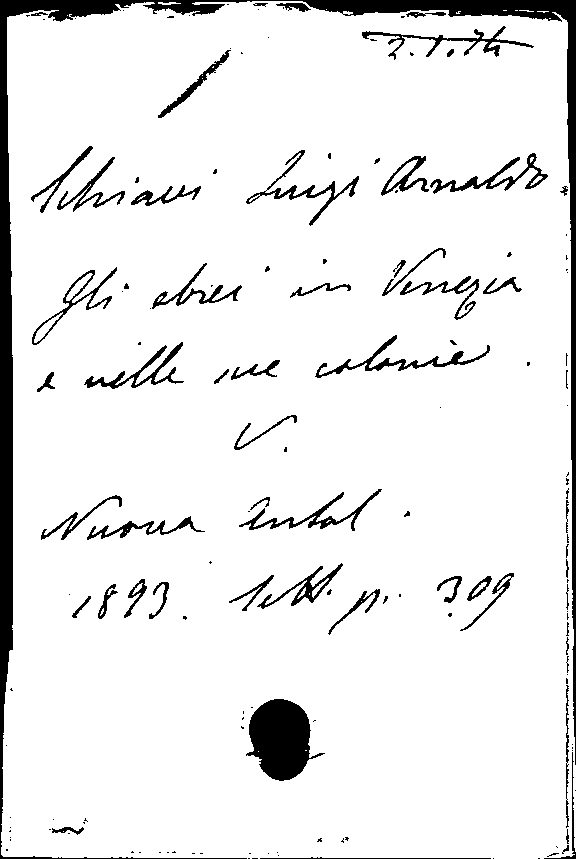 2.1.74
Schiavi Luigi Arnaldo
Gli ebrei in Venezia
e nelle sue colonie.
V.
Nuova Antol.
1893. Sett. p. 309